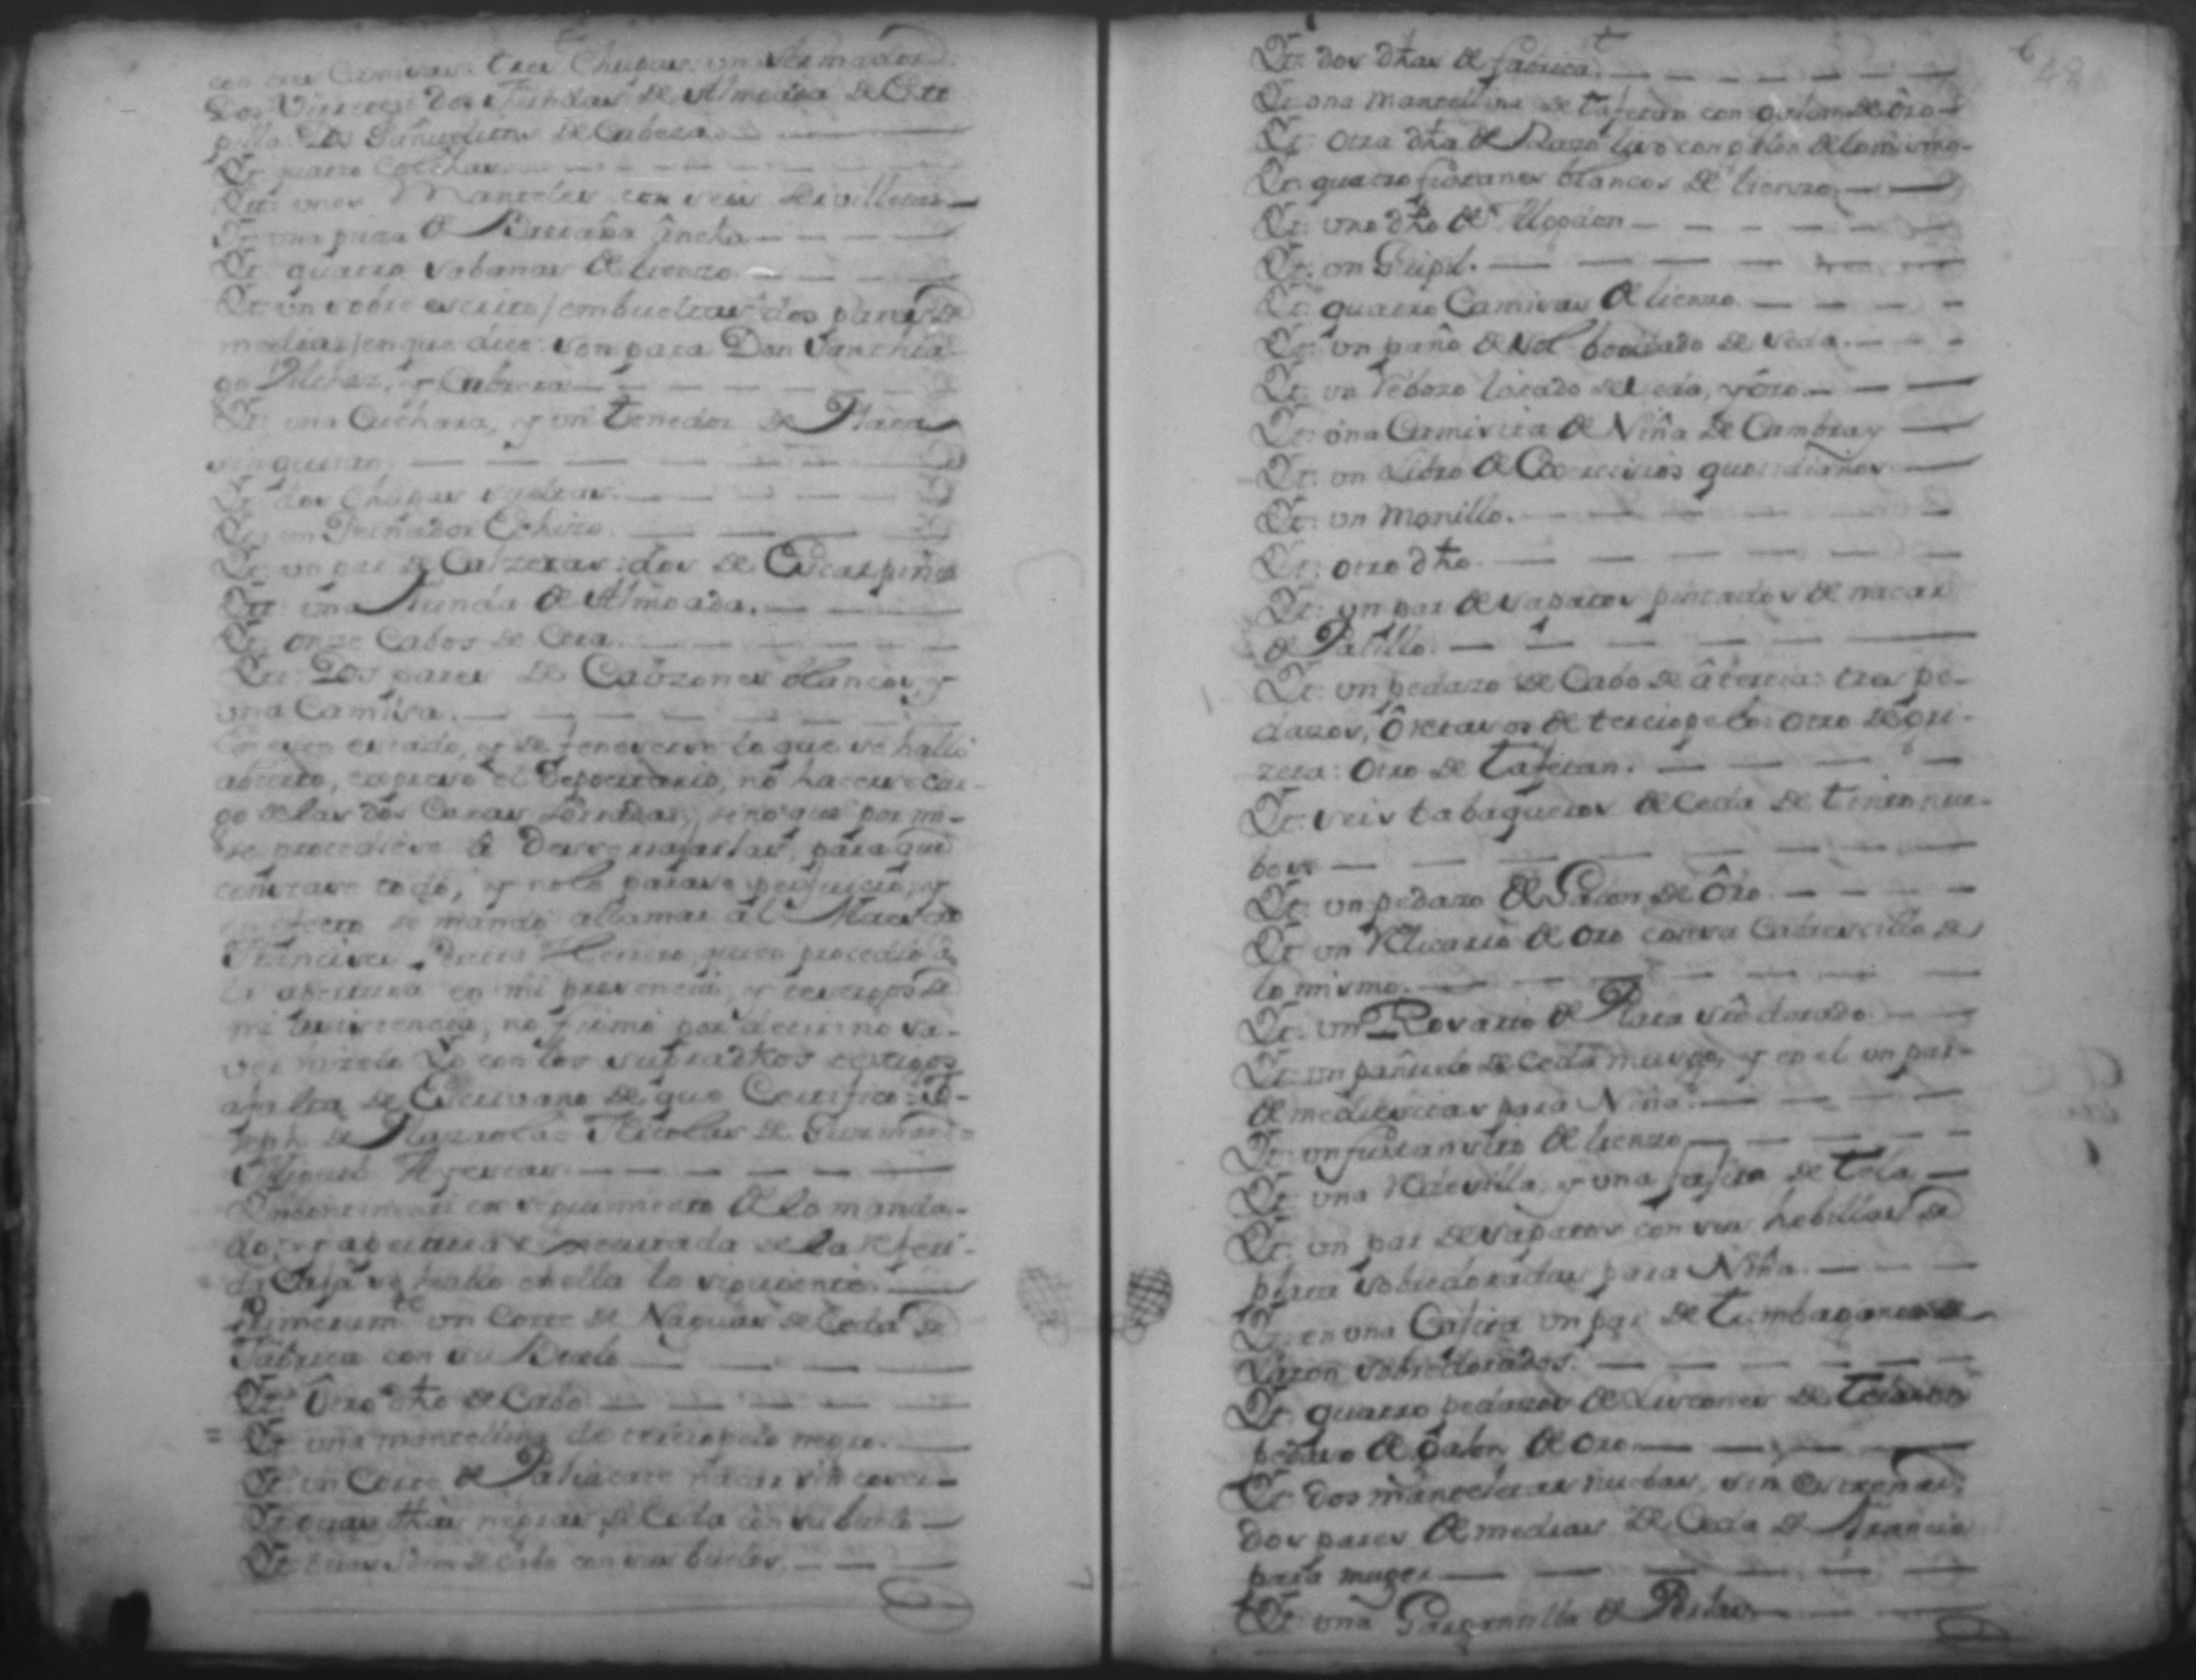 con tres Camisas: tres Chupas: un Armador:
Dos Dos fundas de Almoada de
pilla: Dos de Cabeza
Yt. quatro Colchas
Ytt: unos Manteles con seis Servilletas
Yt una pieza de Bretaña âncha
Yt. quatro sabanas de lienzo
Yt un sobre escrito / embueltas dos pares de
medias / en que dice: son para Don Santhia
go Vilches, y Cabrera
Yt. una Cuchara, y un tenedor de Plata
sin quintar
Yt. dos Chupas
Yt. un Peinador Echizo.
Yt. un par de Calzetas: dos de Escarpines
Ytt: una funda de Almoada.
Yt. onze Cabos de Cera.
Ytt: Dos pares de Calzones blancos, y
una Camisa.
En este estado, y de fenecerse lo que se halló
abierto, expresó el Depocitario, no hacerse car-
go de las dos Caxas serradas, sino que por mi
se procediese â Deserrajarlas, para que
constase todo, y no le parase perjuicio, y
en efecto se mandó allamar al Maestro
Francisco Herrero, quien procedió â
la abertura en mi precencia, y testigos de
mi assistencia, no firmó por decir no sa-
ver hizelo Yo con los supradhos testigos
afalta de Escrivano de que Certifico =
de = Nicolas de Guzman =
Miguel
en seguimiento de lo manda-
do, y abertura executada de la referi-
da Caja se halló en ella lo siguiente
Primeramte. un Corte de Naguas de Ceda de
Fabrica con su Buelo
Yt. Ôtro dho de Cabo
= Yt una mantellina de terciopelo negro.
Yt. un Corte de nacar sin coser
Yt otras dhas negras de Ceda con su buelo
Yt. otras Idem de Cabo con sus buelos.
Yt. dos dhas de fabrica
Yt una Mantellina de tafetan con de Ôro
Yt. Otra dha de Razo liso con de lo mismo
Yt. quatro fustanes blancos de lienzo
Yt. uno dho de Algodon
Yt. un Guipil.
Yt. quatro Camisas de lienzo.
Yt. un paño de sol bordado de seda.
Yt. un rebozo de seda, y Ôro.
Yt. una Camisita de Niña de Cambray
Yt. un Libro de Exercicios quotidianos
Yt. un Monillo.
Yt. otro dho.
Yt. un par de sapatos pintados de nacar
de Palillo.
Yt. un pedazo de Cabo de â tercia: tres pe-
dazos, Ôretasos de terciopelo: otro de
zeta: Otro de tafetan.
Yt. seis tabaqueros de Ceda de
bos
Yt. un pedazo de Galon de Ôro
Yt un Relicario de Oro con su Cabescillo de
lo mismo.
Yt. un Rosario de Plata sôdorado
Yt. un pañuelo de Ceda musgo, y en el un par
de mediesitas para Niña.
Yt. un fustansito de lienzo
Yt. una y una fajita de tela
Yt. un par de sapatos con sus hebillas de
plata sobredoradas para Niña.
Yt. en una Cajita un par de tumbagones de
Laton sobredorados.
Yt. quatro pedazos de Listones de
pedaso de Galon de Oro
Yt dos mantelitas nuebas, sin Estrenar:
dos pares de medias de Ceda de Francia
para muger
Yt. una Gargantilla de Perlas